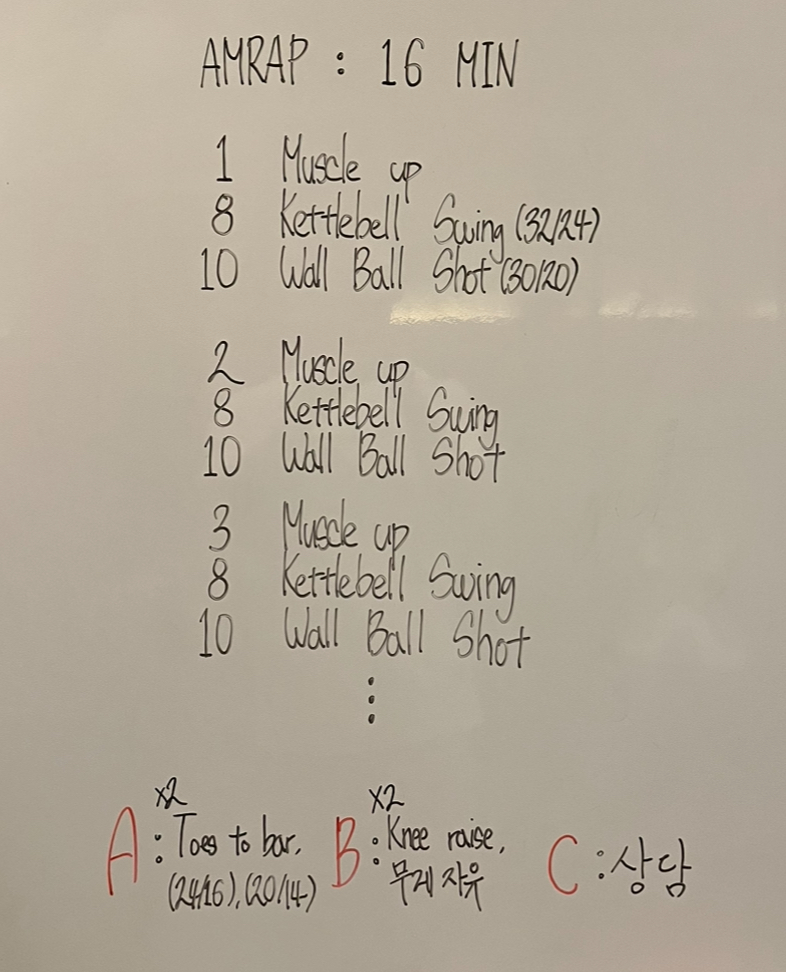 AMRAP : 16 MIN
1 Muscle up
8 Kettlebell Swing (32/24)
10 Wall Ball Shot (30/20)
2 Muscle up
8 Kettlebell Swing
10 Wall Ball Shot
3 Muscle up
8 Kettlebell Swing
10 Wall Ball Shot
⋮
x2
A : Toes to bar,
(24/16), (20/14)
x2
B : Knee raise,
무게 자유
C : 상담